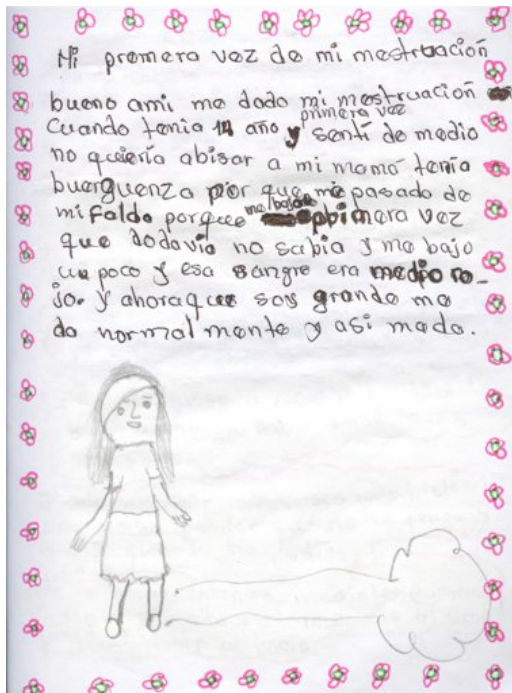 Mi primera vez de mi mestruación
bueno ami me dado mi mestruación
primera vez
Cuando tenia 14 año y sentí de medio
no quieria abisar a mi mamá tenía
buerguenza por que me pasado de
mi falda porque me bajo primera vez
que dodavia no sabia y me bajo
un poco y esa sangre era medio ro-
jo. y ahora que soy grande me
da normal mente y asi me da.